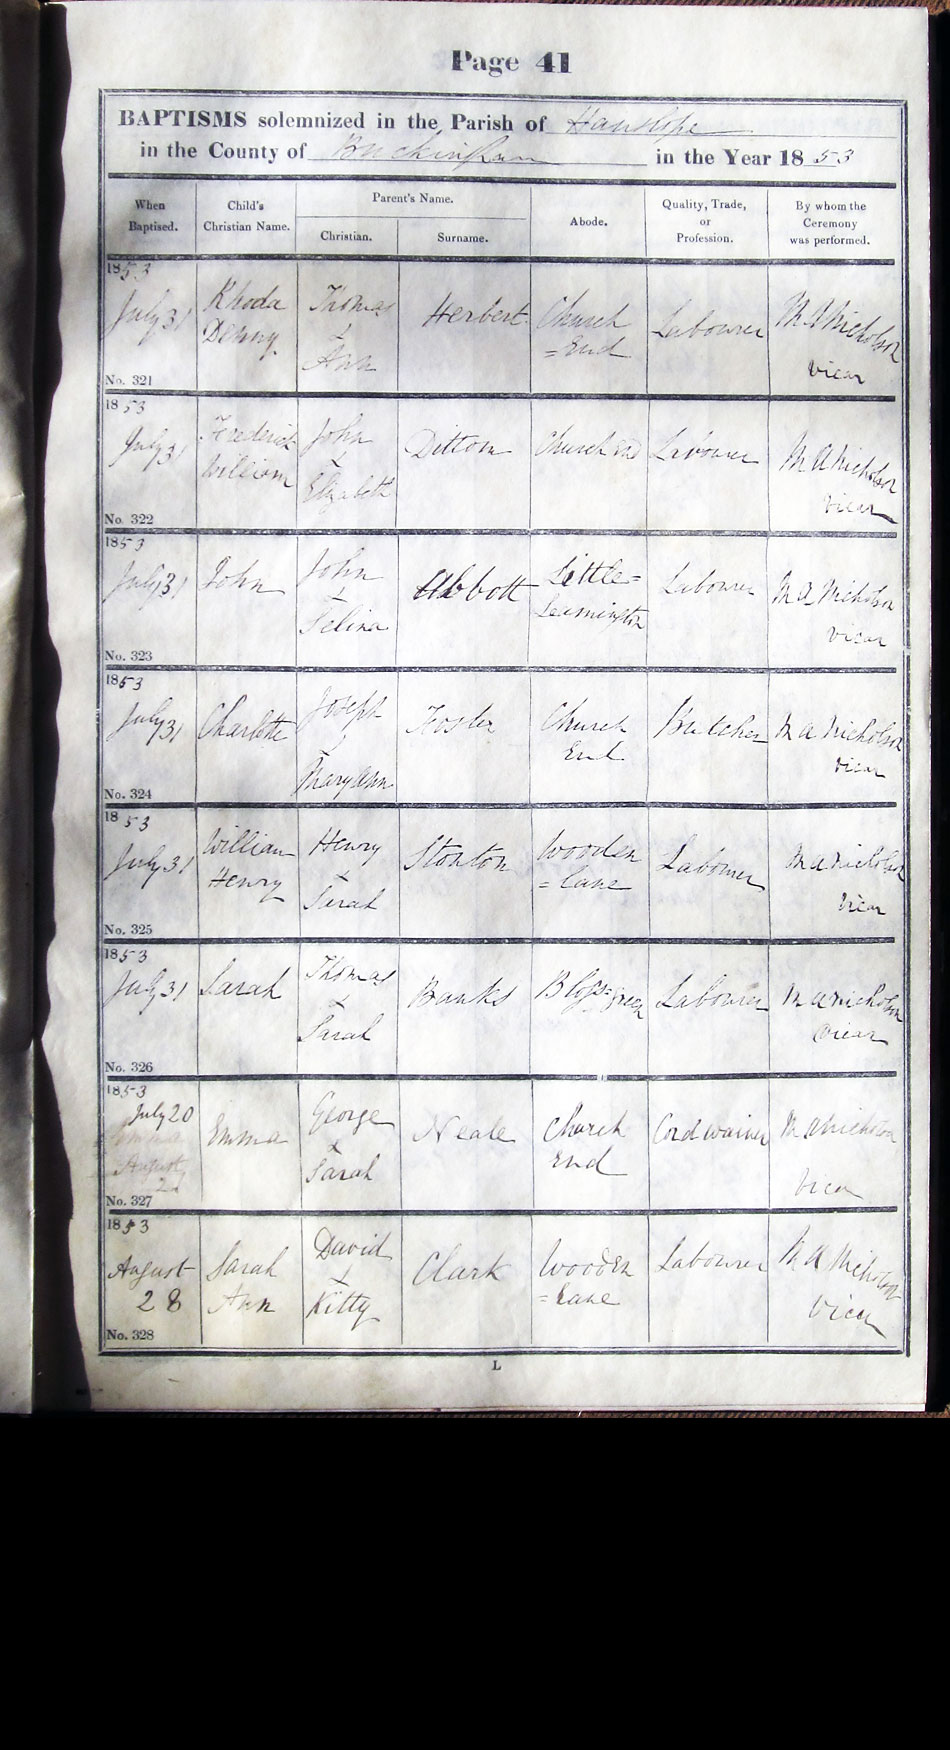 Page 41
BAPTISMS solemnized in the Parish of Hanslope
in the County of Buckingham in the Year 1853
When Baptised.
Child's Christian Name.
Parent's Name.
Christian.
Surname.
Abode.
Quality, Trade, or Profession.
By whom the Ceremony was performed.
1853
July 31
Rhoda
Denny
Thomas
&
Ann
Herbert
Church
=End
Labourer
M A Nicholson
Vicar
No. 321
1853
July 31
Frederick
William
John
&
Elizabeth
Dittom
Church End
Labourer
M A Nicholson
Vicar
No. 322
1853
July 31
John
John
&
Selina
Abbott
Little=
Leamington
Labourer
M A Nicholson
Vicar
No. 323
1853
July 31
Charlotte
Joseph
&
Mary Ann
Foster
Church
End
Butcher
M A Nicholson
Vicar
No. 324
1853
July 31
William
Henry
Henry
&
Sarah
Stonton
Wooden
=lane
Labourer
M A Nicholson
Vicar
No. 325
1853
July 31
Sarah
Thomas
&
Sarah
Banks
Bloss=green
Labourer
M A Nicholson
Vicar
No. 326
1853
July 20
August
Emma
George
&
Sarah
Neale
Church
End
Cordwainer
M A Nicholson
Vicar
No. 327
1853
August
28
Sarah
Ann
David
&
Kitty
Clark
Wooden
=Lane
Labourer
M A Nicholson
Vicar
No. 328
L